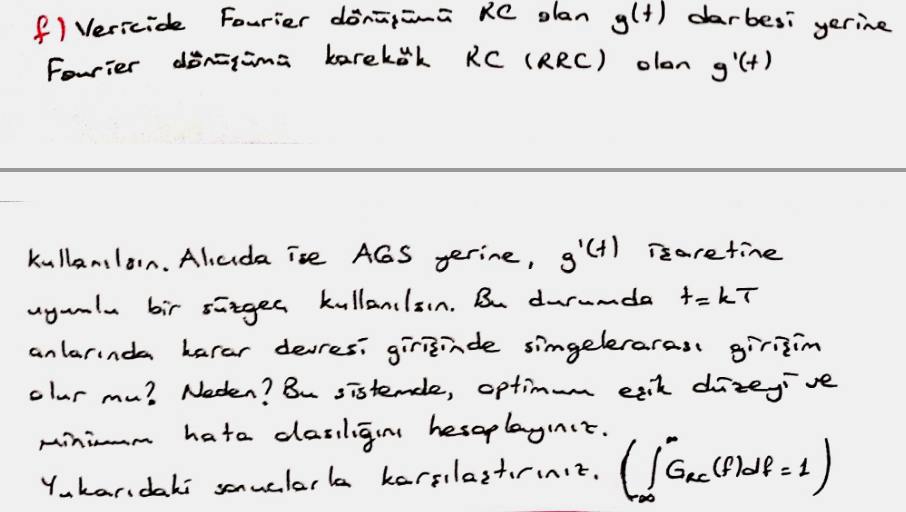 f) Vericide Fourier dönüşümü RC olan g(t) darbesi yerine
Fourier dönüşümü karekök RC (RRC) olan g'(t)
kullanılsın. Alıcıda ise AGS yerine, g'(t) işaretine
uyumlu bir süzgeç kullanılsın. Bu durumda t=kT
anlarında karar devresi girişinde simgelerarası girişim
olur mu? Neden? Bu sistemde, optimum eşik düzeyi ve
minimum hata olasılığını hesaplayınız.
Yukarıdaki sonuçlarla karşılaştırınız. (∫_{-∞}^{∞} G_{RC}(f)df = 1)